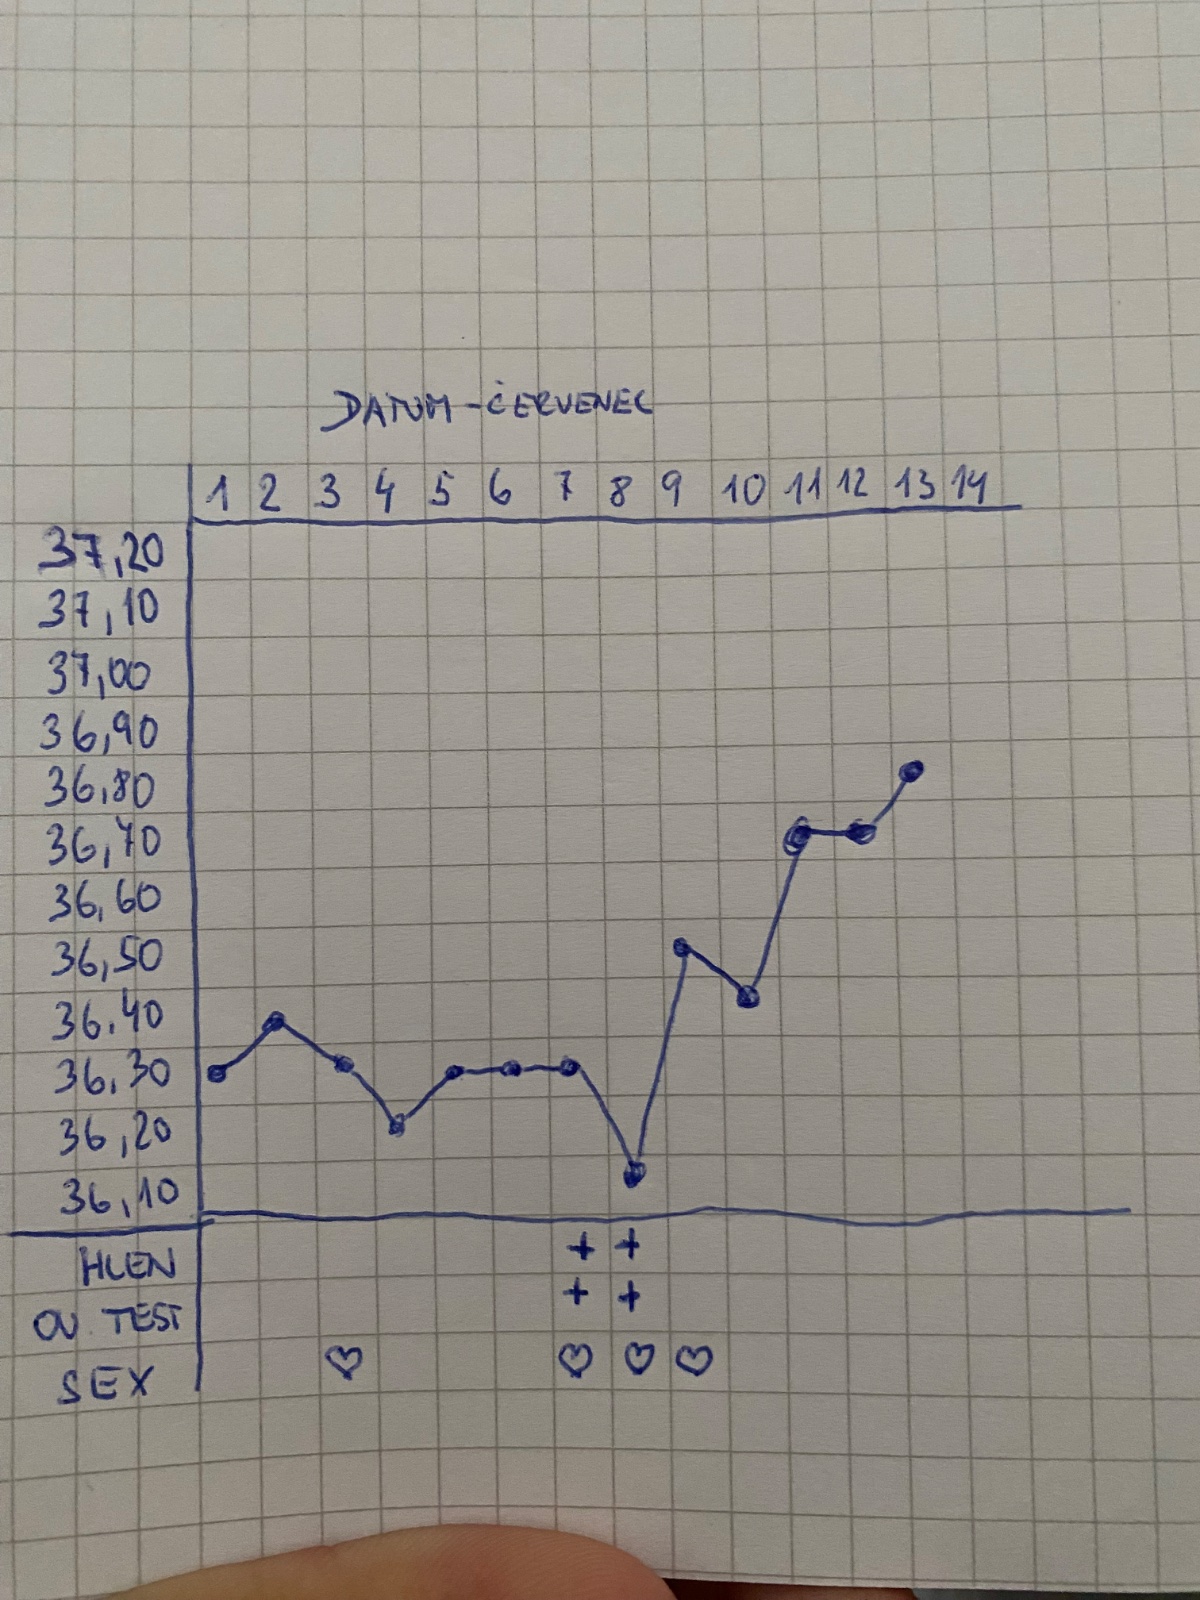 DATUM - ČERVENEC
1 2 3 4 5 6 7 8 9 10 11 12 13 14
37,20
37,10
37,00
36,90
36,80
36,70
36,60
36,50
36,40
36,30
36,20
36,10
HLEN + +
OV. TEST + +
SEX ♡ ♡ ♡ ♡